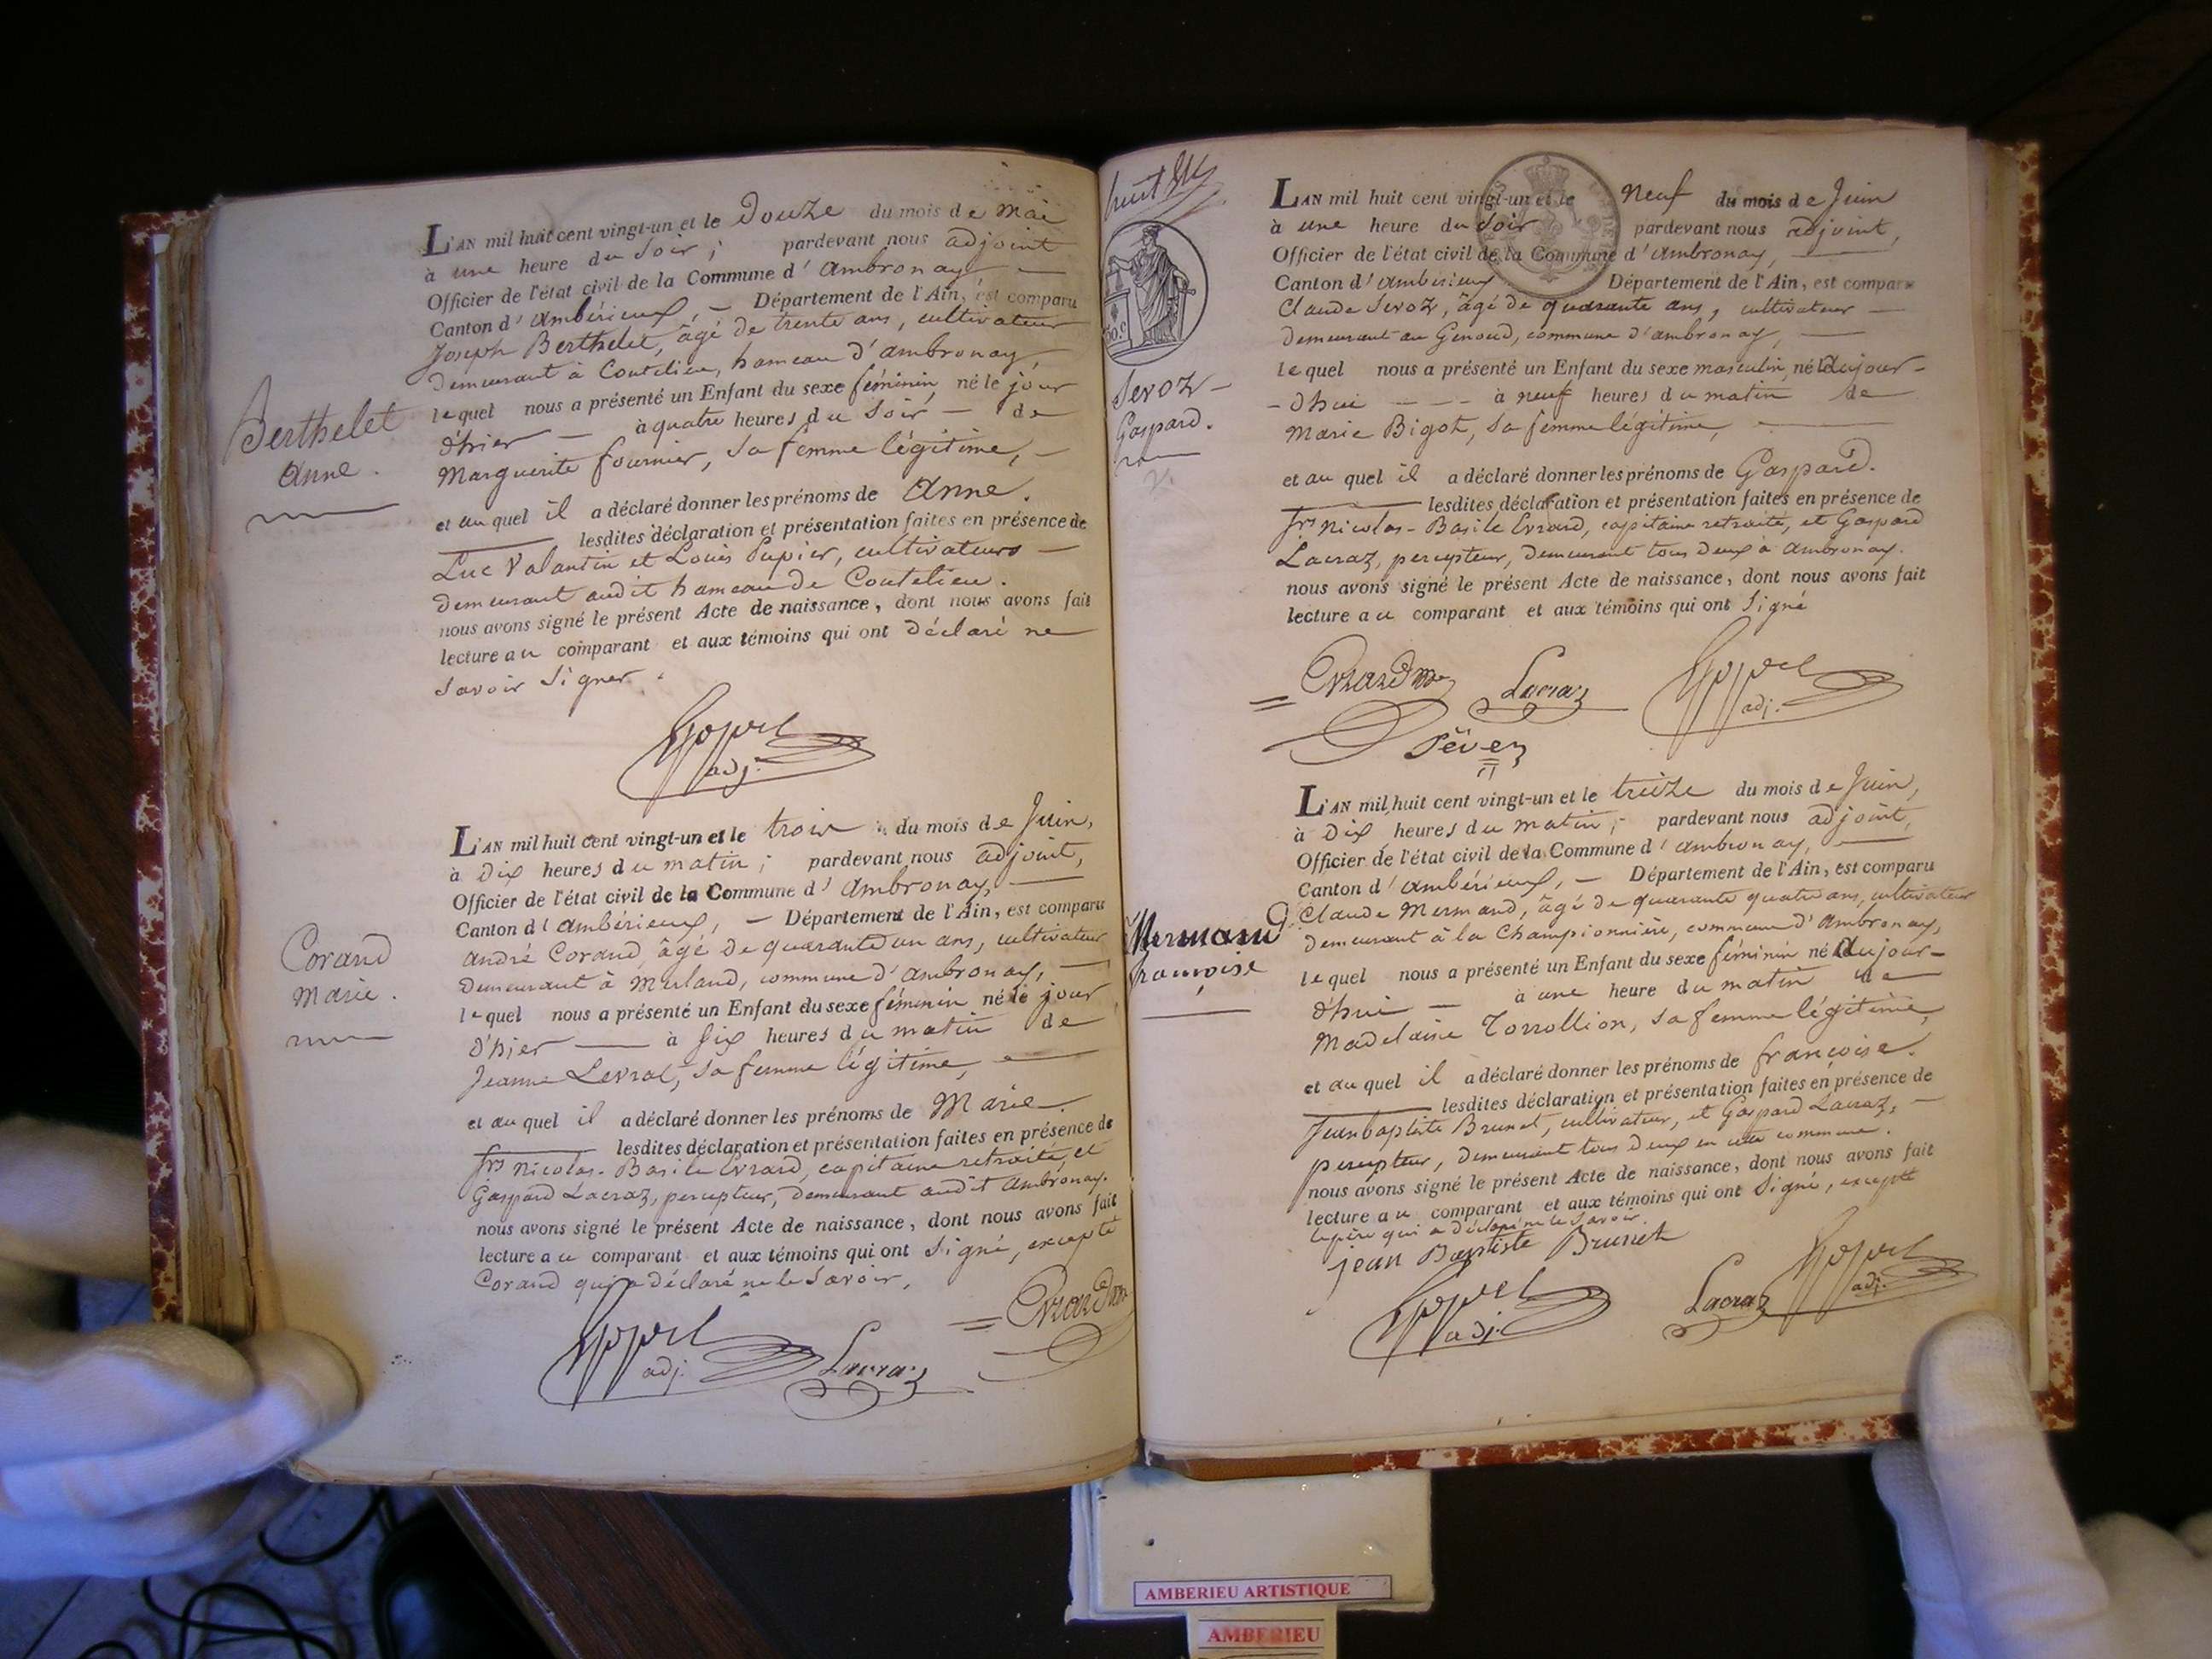 L'AN mil huit cent vingt-un et le Douze du mois de Mai
à une heure du Soir ; pardevant nous adjoint
Officier de l'état civil de la Commune d'Ambronay —
Canton d'Ambérieux, — Département de l'Ain, est comparu
Joseph Berthelet, âgé de trente ans, cultivateur
Demeurant à Coutelieu, hameau d'ambronay,
lequel nous a présenté un Enfant du sexe féminin, né le jour
d'hier — à quatre heures du Soir — de
Marguerite fournier, Sa femme légitime, —
et au quel il a déclaré donner les prénoms de Anne.
lesdites déclaration et présentation faites en présence de
Luc Valantin et Louis Pupier, cultivateurs —
demeurant audit hameau de Coutelieu.
nous avons signé le présent Acte de naissance, dont nous avons fait
lecture au comparant et aux témoins qui ont déclaré ne
Savoir Signer.
adj.
Berthelet
Anne.
L'AN mil huit cent vingt-un et le trois du mois de Juin,
à Dix heures du matin ; pardevant nous adjoint,
Officier de l'état civil de la Commune d'Ambronay, —
Canton d'Ambérieux, — Département de l'Ain, est comparu
André Corand, âgé de quarante un ans, cultivateur
Demeurant à Merland, commune d'Ambronay, —
lequel nous a présenté un Enfant du sexe féminin né le jour
d'hier — à Six heures du matin de
Jeanne Levrat, Sa femme légitime, —
et au quel il a déclaré donner les prénoms de Marie.
lesdites déclaration et présentation faites en présence de
frs Nicolas-Basile Evrard, capitaine retraité, et
Gaspard Lacraz, percepteur, Demeurant audit Ambronay.
nous avons signé le présent Acte de naissance, dont nous avons fait
lecture au comparant et aux témoins qui ont Signé, excepté
Corand qui a déclaré ne le Savoir,
adj. Lacraz Evrard
Corand
Marie.
huit
Servoz
Gaspard.
L'AN mil huit cent vingt-un et le Neuf du mois de Juin
à une heure du Soir pardevant nous adjoint,
Officier de l'état civil de la Commune d'Ambronay, —
Canton d'Ambérieux Département de l'Ain, est comparu
Claude Servoz, âgé de quarante ans, cultivateur —
Demeurant au Genoud, commune d'ambronay, —
lequel nous a présenté un Enfant du sexe masculin, né aujour-
-d'hui — à neuf heures du matin de
Marie Bigot, Sa femme légitime, —
et au quel il a déclaré donner les prénoms de Gaspard.
lesdites déclaration et présentation faites en présence de
frs Nicolas-Basile Evrard, capitaine retraité, et Gaspard
Lacraz, percepteur, Demeurant tous Deux à Ambronay.
nous avons signé le présent Acte de naissance, dont nous avons fait
lecture au comparant et aux témoins qui ont Signé
Evrard Lacraz adj.
L'AN mil huit cent vingt-un et le treize du mois de Juin,
à Dix heures du matin ; pardevant nous adjoint,
Officier de l'état civil de la Commune d'ambronay, —
Canton d'Ambérieux, — Département de l'Ain, est comparu
Claude Mermand, âgé de quarante quatre ans, cultivateur
Demeurant à la Championnière, commune d'Ambronay,
lequel nous a présenté un Enfant du sexe féminin né aujour-
d'hui — à une heure du matin de
Madelaine Torrollion, Sa femme légitime,
et au quel il a déclaré donner les prénoms de françoise.
lesdites déclaration et présentation faites en présence de
Jean baptiste Brunet, cultivateur, et Gaspard Lacraz, —
percepteur, Demeurant tous Deux en cette commune.
nous avons signé le présent Acte de naissance, dont nous avons fait
lecture au comparant et aux témoins qui ont Signé, excepté
le père qui a déclaré ne le Savoir.
jean Baptiste Brunet
adj. Lacraz adj.
Mermand
françoise
AMBERIEU ARTISTIQUE
AMBERIEU